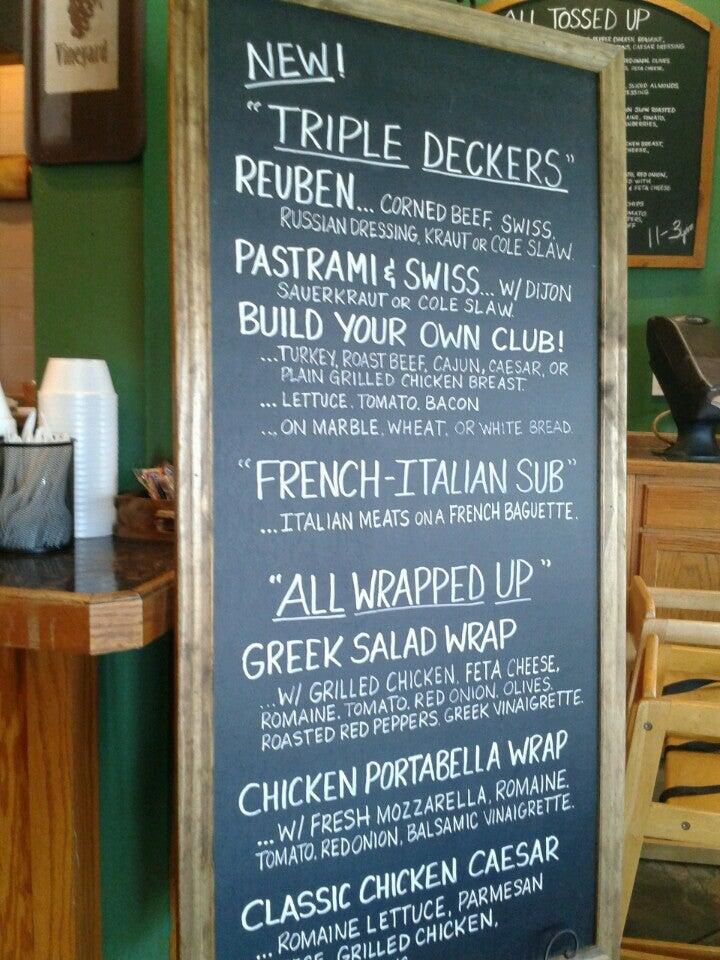 Vineyard
NEW!
"TRIPLE DECKERS"
REUBEN... CORNED BEEF, SWISS,
RUSSIAN DRESSING, KRAUT OR COLE SLAW.
PASTRAMI & SWISS... W/ DIJON
SAUERKRAUT OR COLE SLAW.
BUILD YOUR OWN CLUB!
...TURKEY, ROAST BEEF, CAJUN, CAESAR, OR
PLAIN GRILLED CHICKEN BREAST.
... LETTUCE, TOMATO, BACON
...ON MARBLE, WHEAT, OR WHITE BREAD.
"FRENCH-ITALIAN SUB"
...ITALIAN MEATS ON A FRENCH BAGUETTE.
"ALL WRAPPED UP"
GREEK SALAD WRAP
...W/ GRILLED CHICKEN, FETA CHEESE,
ROMAINE, TOMATO, RED ONION, OLIVES,
ROASTED RED PEPPERS, GREEK VINAIGRETTE.
CHICKEN PORTABELLA WRAP
...W/ FRESH MOZZARELLA, ROMAINE,
TOMATO, RED ONION, BALSAMIC VINAIGRETTE.
CLASSIC CHICKEN CAESAR
... ROMAINE LETTUCE, PARMESAN
GRILLED CHICKEN,
ALL TOSSED UP
CAESAR DRESSING
RED ONION, OLIVES
FETA CHEESE,
SLICED ALMONDS
SLOW ROASTED
TOMATO,
CHICKEN BREAST,
CHEESE,
RED ONION,
WITH
& FETA CHEESE
CHIPS
11-3pm